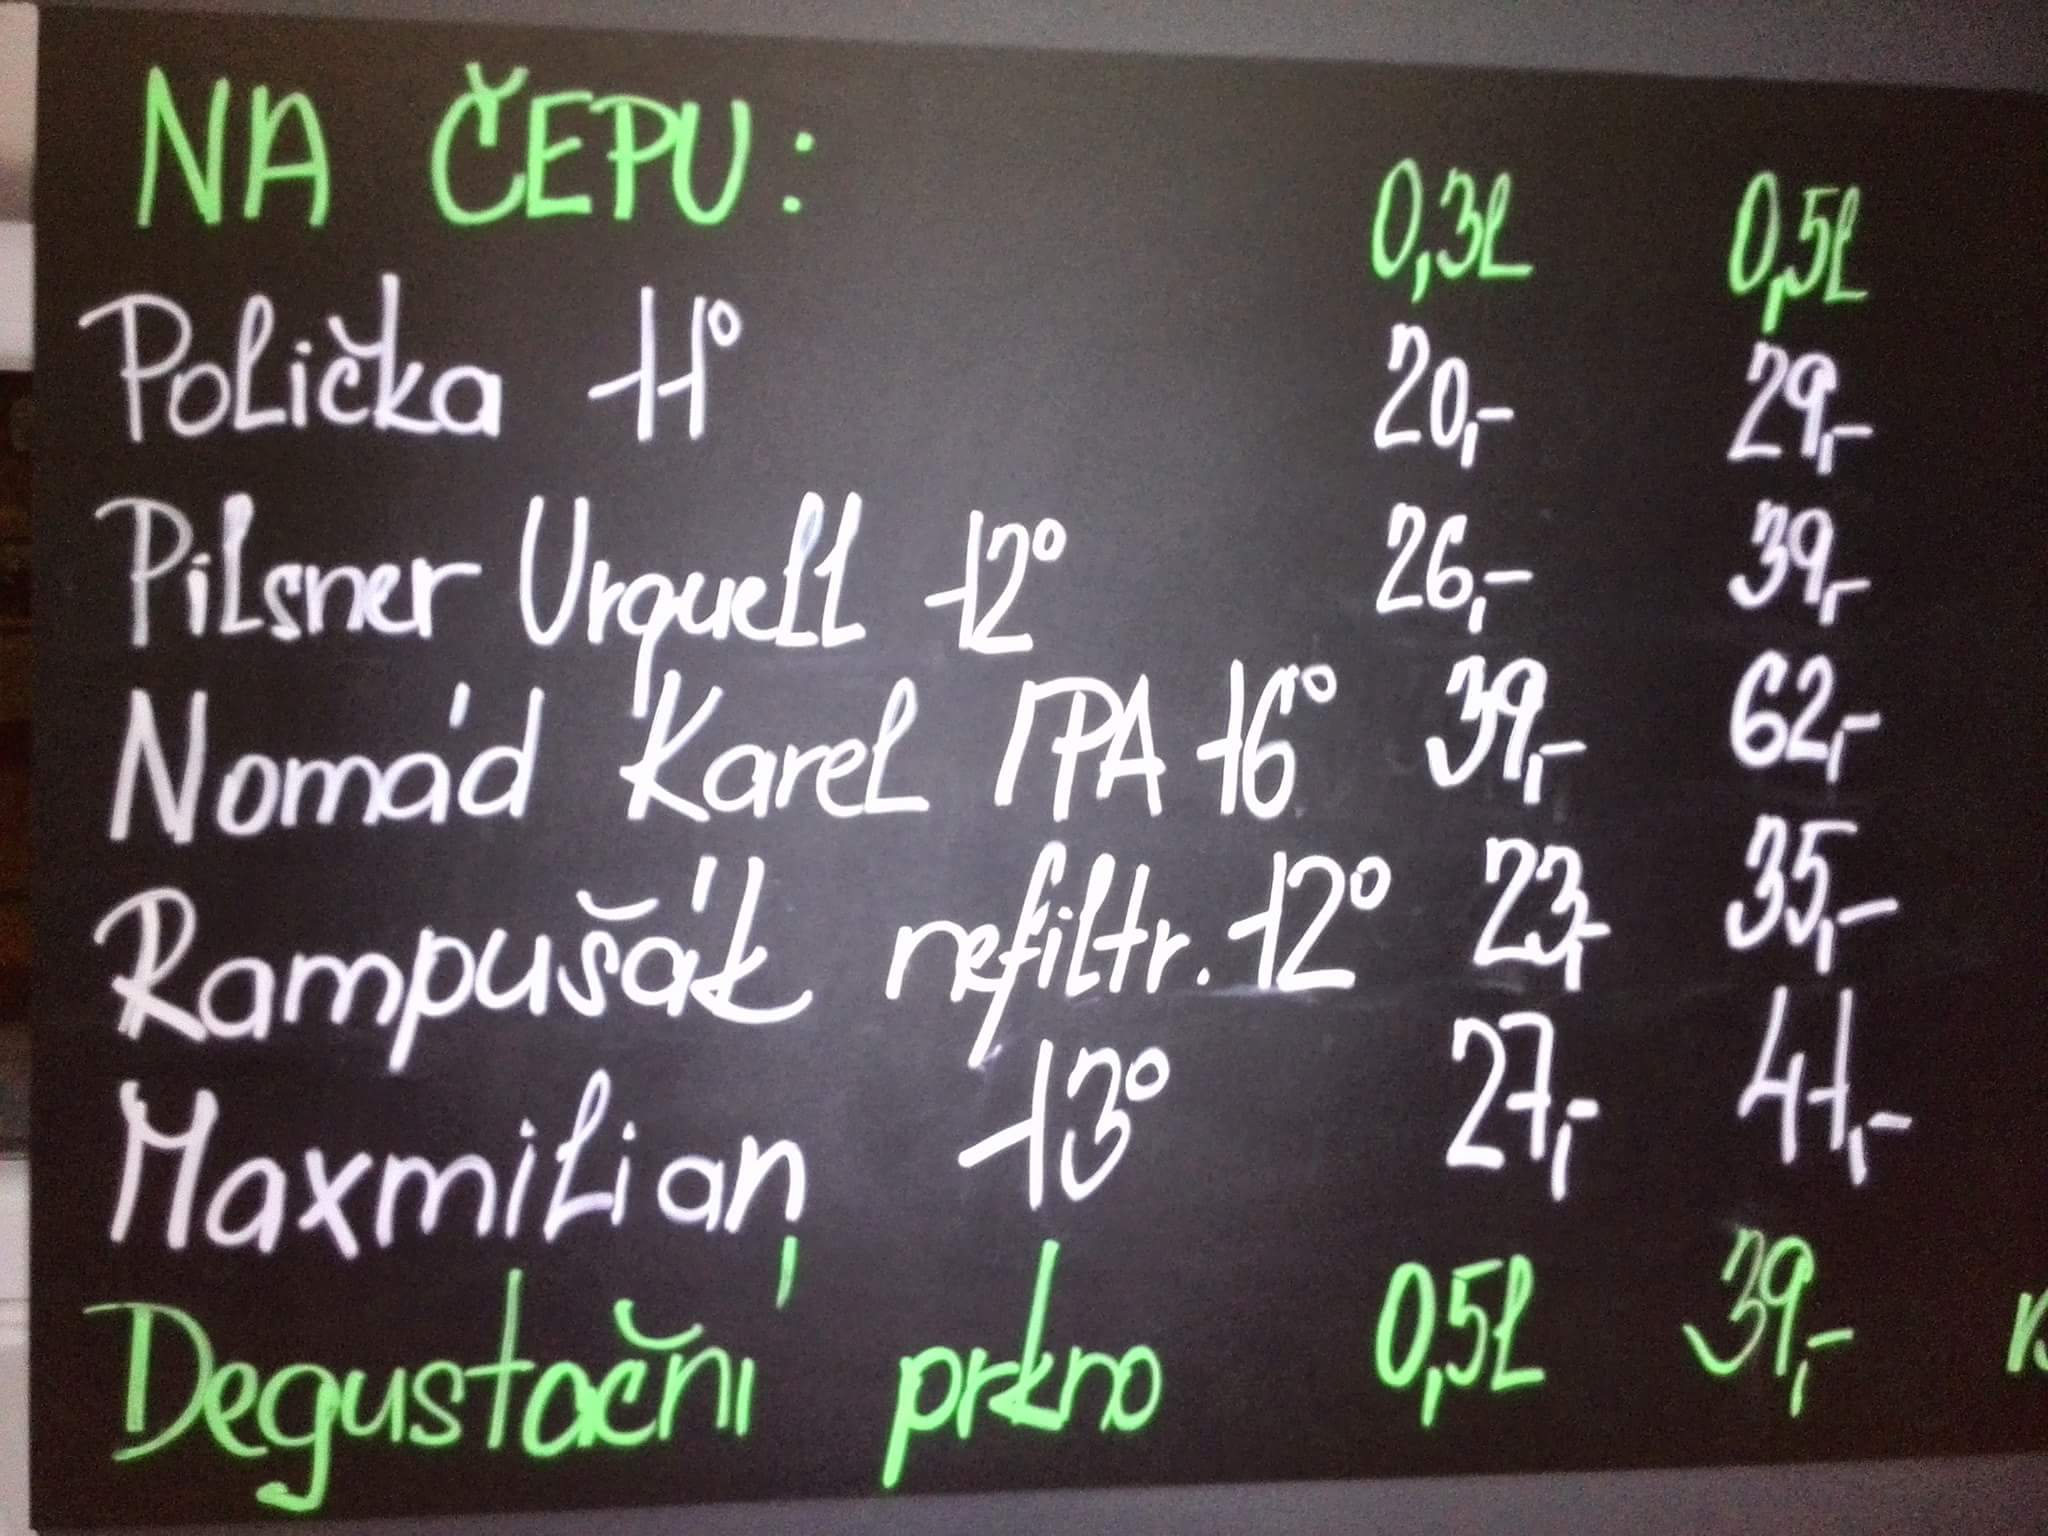 NA ČEPU:
0,3l 0,5l
Polička 11° 20,- 29,-
Pilsner Urquell 12° 26,- 39,-
Nomád Karel IPA 16° 39,- 62,-
Rampušák nefiltr. 12° 23,- 35,-
Maxmilian 13° 27,- 41,-
Degustační prkno 0,5l 39,-